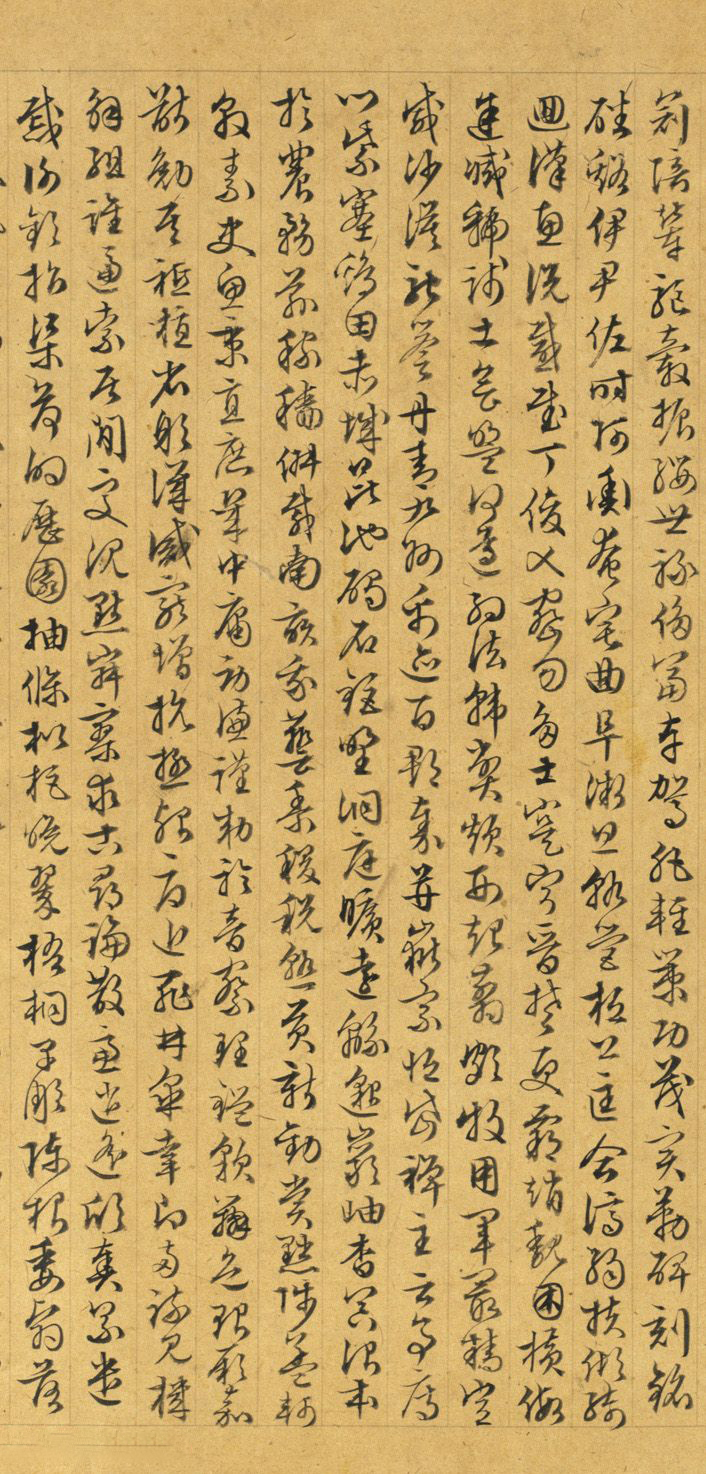 冠陪輦驅轂振纓世祿侈富車駕肥輕策功茂實勒碑刻銘
磻谿伊尹佐時阿衡奄宅曲阜微旦孰營桓公匡合濟弱扶傾綺
迴漢惠說感武丁俊乂密勿多士寔寧晉楚更霸趙魏困橫假
途滅虢踐土會盟何遵約法韓弊煩刑起翦頗牧用軍最精宣
威沙漠馳譽丹青九州禹跡百郡秦并嶽宗恒岱禪主云亭雁
門紫塞雞田赤城昆池碣石鉅野洞庭曠遠緜邈巖岫杳冥治本
於農務茲稼穡俶載南畝我藝黍稷稅熟貢新勸賞黜陟孟軻
敦素史魚秉直庶幾中庸勞謙謹勅聆音察理鑑貌辨色貽厥嘉
猷勉其祗植省躬譏誡寵增抗極殆辱近恥林皋幸即兩疏見機
解組誰逼索居閑處沉默寂寥求古尋論散慮逍遙欣奏累遣
慼謝歡招渠荷的歷園抽條枇杷晚翠梧桐早彫陳根委翳落